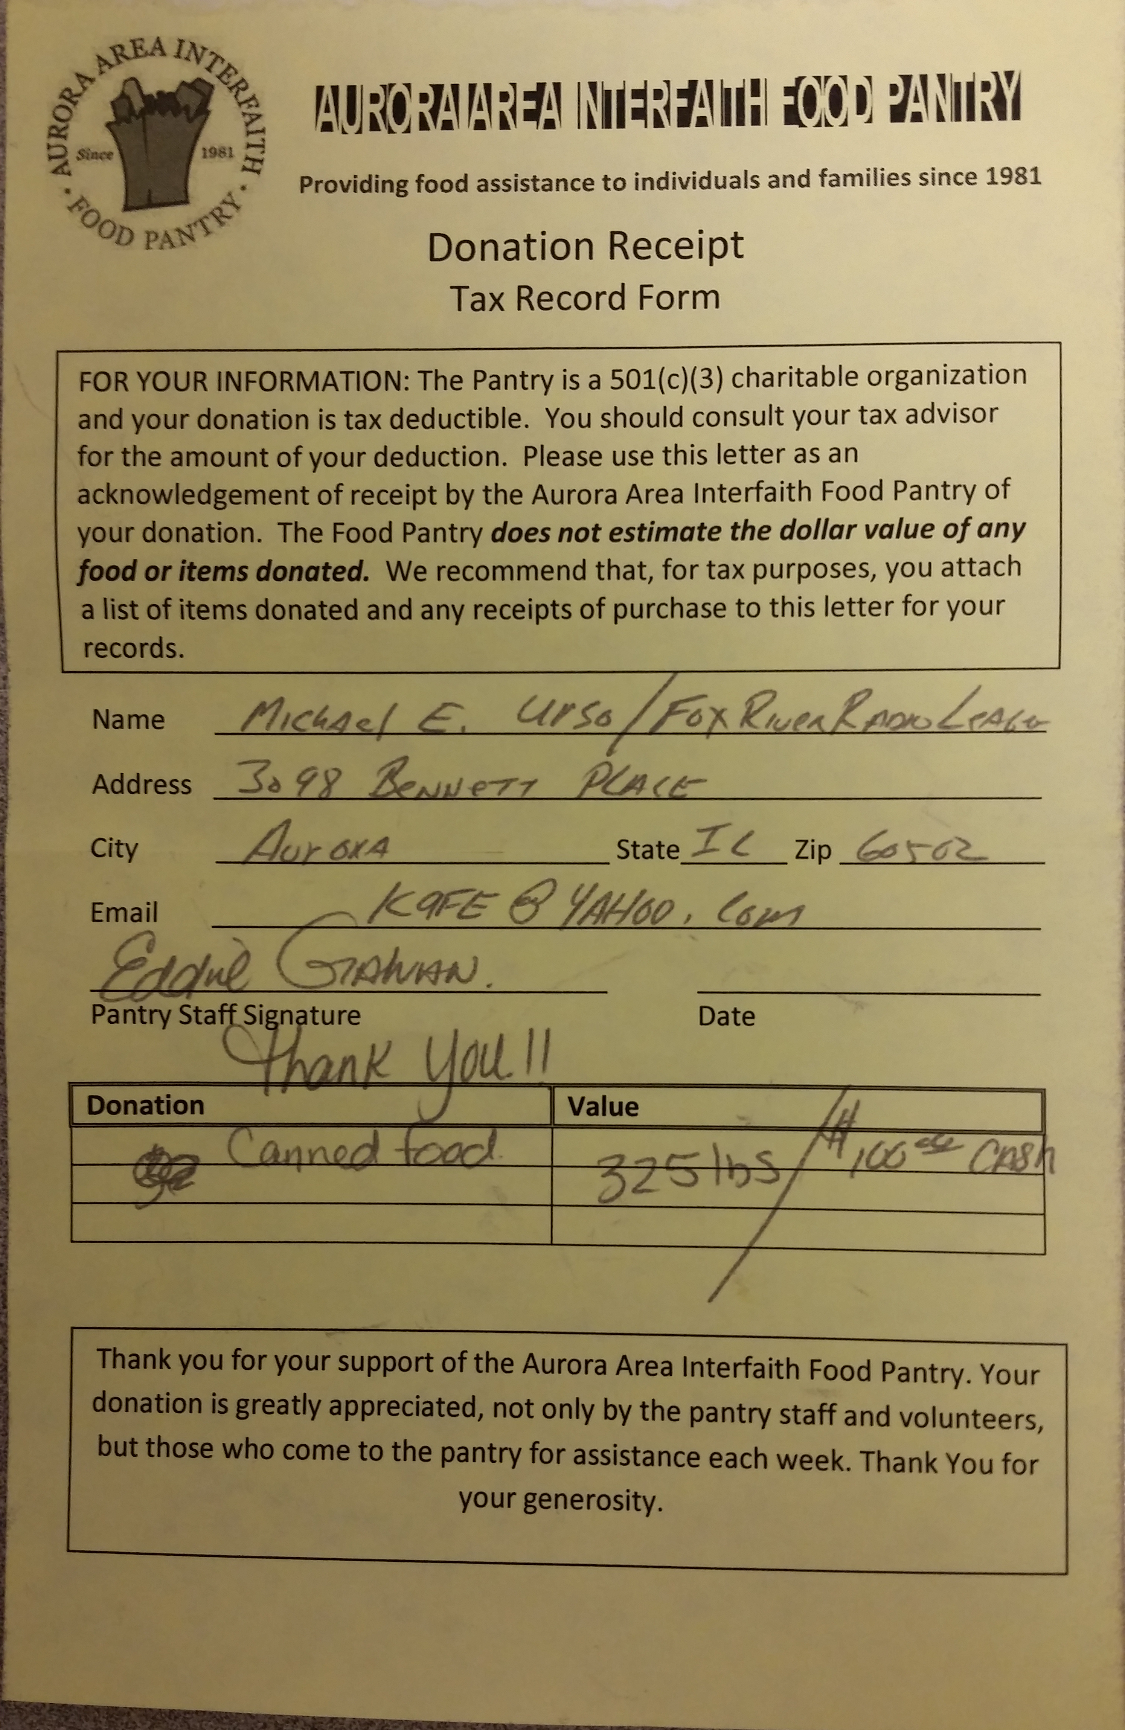 AURORA AREA INTERFAITH
Since 1981
FOOD PANTRY
AURORA AREA INTERFAITH FOOD PANTRY
Providing food assistance to individuals and families since 1981
Donation Receipt
Tax Record Form
FOR YOUR INFORMATION: The Pantry is a 501(c)(3) charitable organization
and your donation is tax deductible. You should consult your tax advisor
for the amount of your deduction. Please use this letter as an
acknowledgement of receipt by the Aurora Area Interfaith Food Pantry of
your donation. The Food Pantry does not estimate the dollar value of any
food or items donated. We recommend that, for tax purposes, you attach
a list of items donated and any receipts of purchase to this letter for your
records.
Name Michael E. Urso / Fox River Radio League
Address 3098 Bennett Place
City Aurora State IL Zip 60502
Email K9FE@YAHOO.com
Eddie
Pantry Staff Signature Date
Thank you!!
Donation Value
Canned food 325 lbs / $100 CASH
Thank you for your support of the Aurora Area Interfaith Food Pantry. Your
donation is greatly appreciated, not only by the pantry staff and volunteers,
but those who come to the pantry for assistance each week. Thank You for
your generosity.